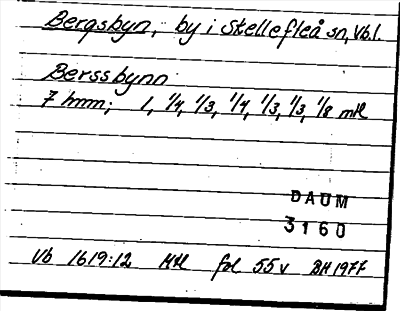 Bergsbyn, by i Skellefteå sn, Vb.l.
Berssbynn
7 hmm; 1, 1/4, 1/3, 1/4, 1/3, 1/3, 1/8 mtl
DAUM
3160
Vb 1619:12 Mtl fol 55v BH 1977